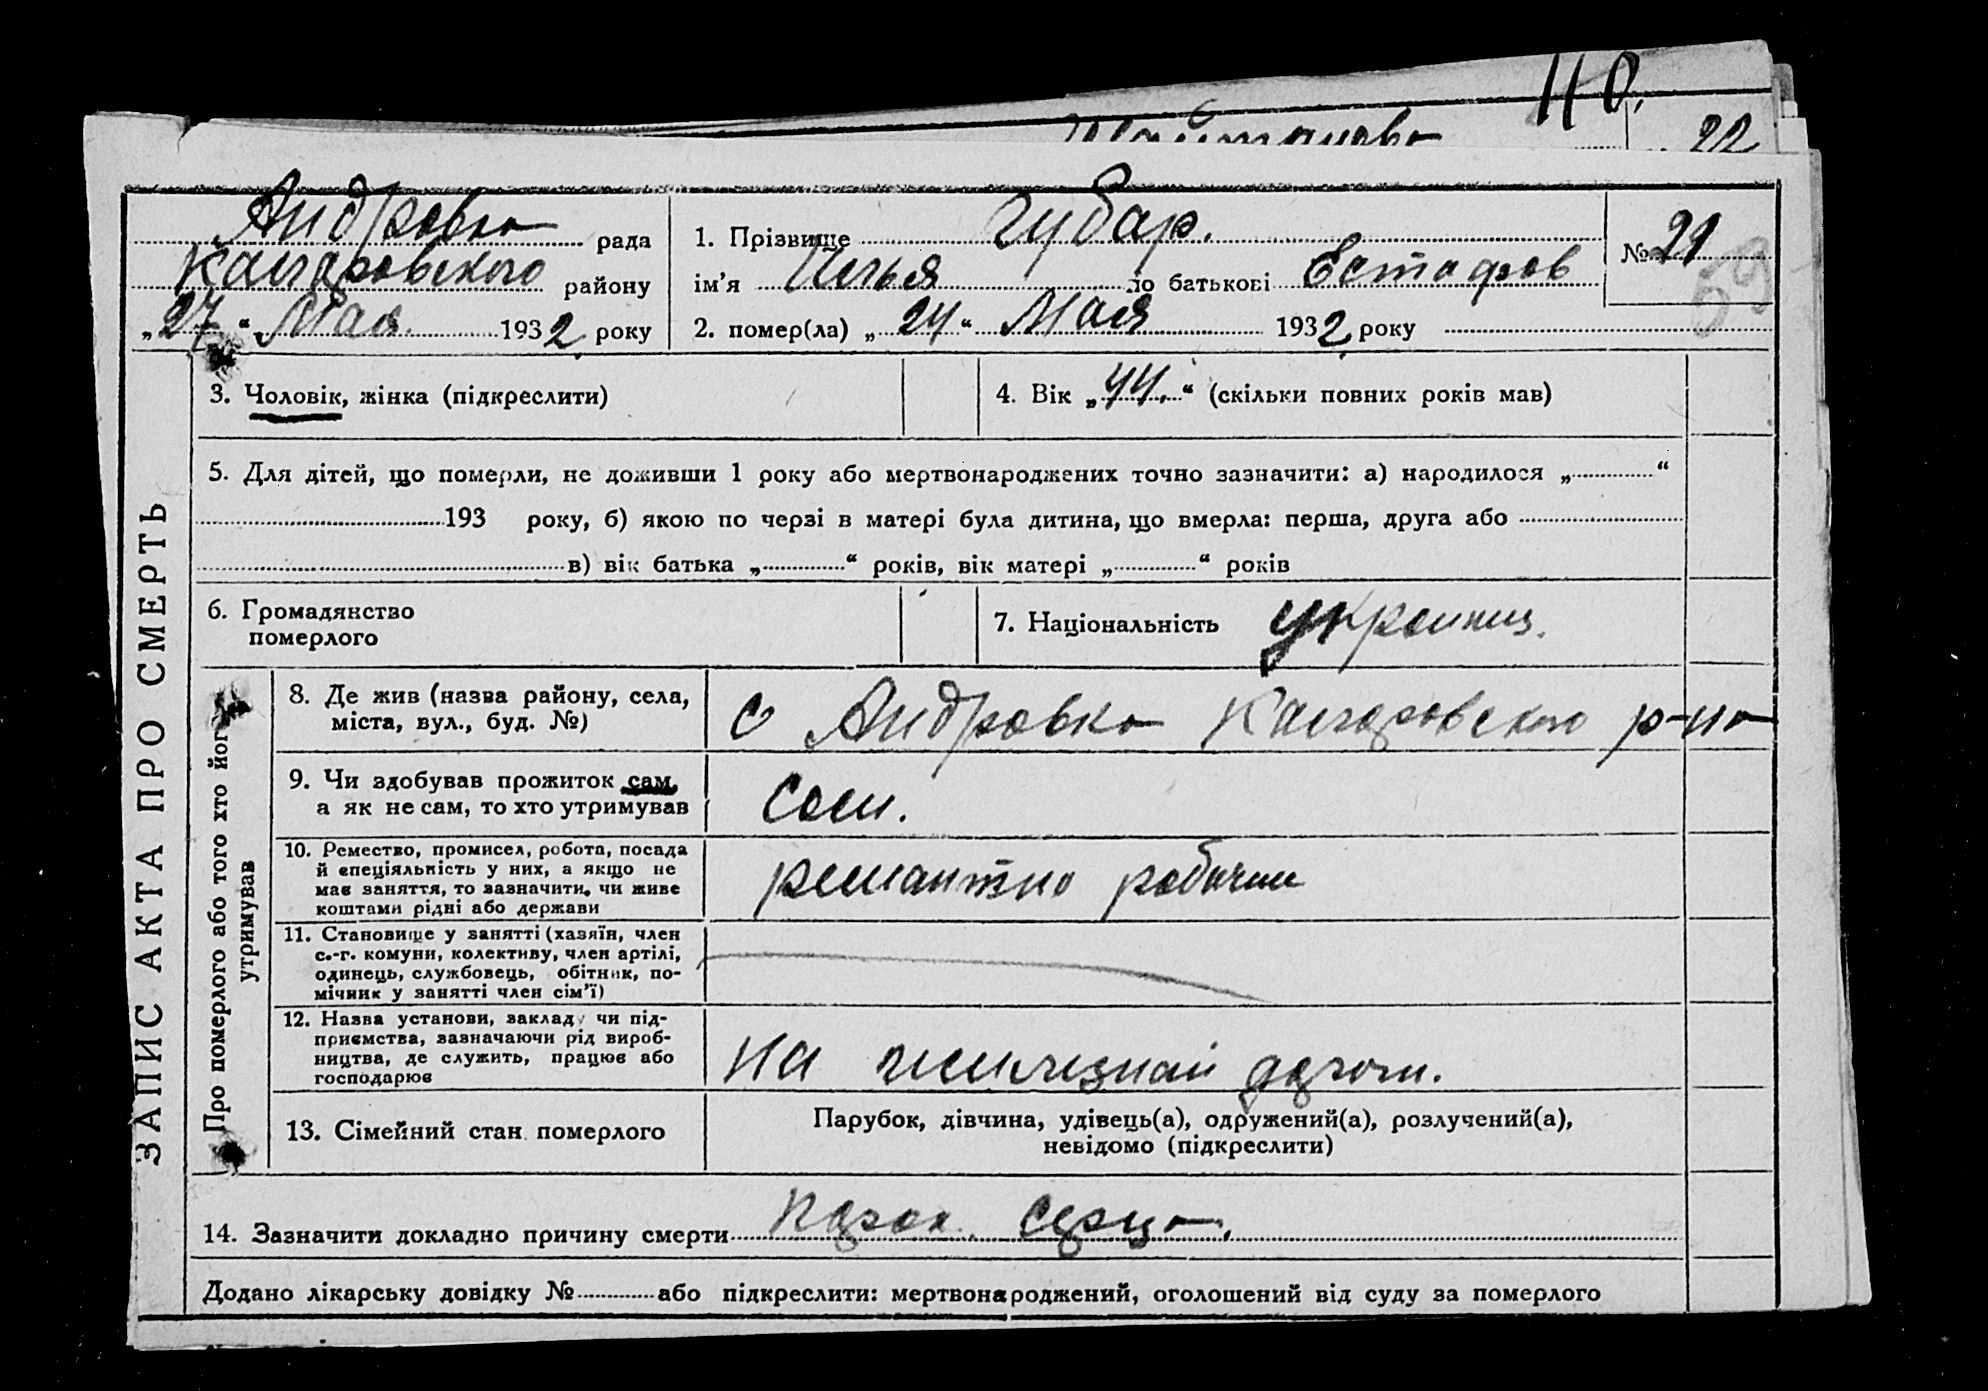 110.
22
Андровка рада
Кагаровского району
„27“ Мая 1932 року
1. Прізвище Губар.
ім’я Илья по батькові Естафов
2. помер(ла) „24“ Мая 1932 року
№ 21
59
3. Чоловік, жінка (підкреслити)
4. Вік „44.“ (скільки повних років мав)
5. Для дітей, що померли, не доживши 1 року або мертвонароджених точно зазначити: а) народилося „ “
193 року, б) якою по черзі в матері була дитина, що вмерла: перша, друга або
в) вік батька „ “ років, вік матері „ “ років
6. Громадянство
померлого
7. Національність украинц.
ЗАПИС АКТА ПРО СМЕРТЬ
Про померлого або того хто його
утримував
8. Де жив (назва району, села,
міста, вул., буд. №)
с Андровка Кагаровского р-на
9. Чи здобував прожиток сам,
а як не сам, то хто утримував
Сам.
10. Ремество, промисел, робота, посада
й спеціяльність у них, а якщо не
має заняття, то зазначити, чи живе
коштами рідні або держави
ремантно рабочим
11. Становище у занятті (хазяїн, член
с.-г. комуни, колективу, член артілі,
одинець, службовець, обітник, по-
мічник у занятті член сім’ї)
12. Назва установи, закладу чи під-
приємства, зазначаючи рід вироб-
ництва, де служить, працює або
господарює
на железнай дароги.
13. Сімейний стан померлого
Парубок, дівчина, удівець(а), одружений(а), розлучений(а),
невідомо (підкреслити)
14. Зазначити докладно причину смерти Парок. серца.
Додано лікарську довідку № або підкреслити: мертвонароджений, оголошений від суду за померлого